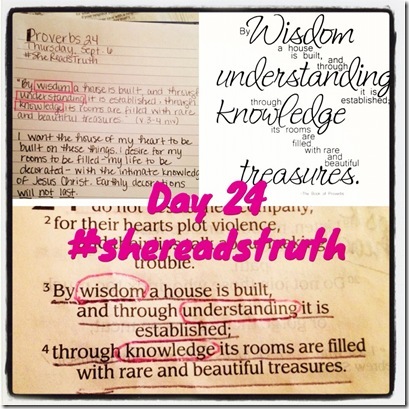 Proverbs 24
Thursday, Sept. 6
#SheReadsTruth
"By wisdom a house is built, and through
understanding it is established; through
knowledge its rooms are filled with rare
and beautiful treasures." (v 3-4 niv)
I want the house of my heart to be
built on these things. I desire for my
rooms to be filled - my life to be
decorated - with the intimate knowledge
of Jesus Christ. Earthly decorations
will not last.
By Wisdom
a house
is built,
and through
understanding
it is
established;
through
knowledge
its rooms
are
filled
with rare
and
beautiful
treasures.
The Book of Proverbs
Day 24
#shereadstruth
do not
company,
2 for their hearts plot violence,
trouble.
3 By wisdom a house is built,
and through understanding it is
established;
4 through knowledge its rooms are filled
with rare and beautiful treasures.